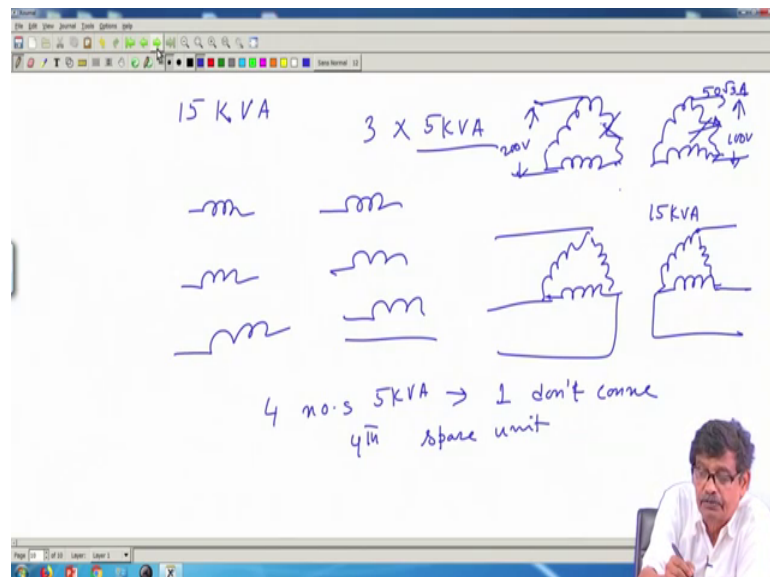 File Edit View Journal Tools Options Help
Sans Normal 12
15 KVA
3 X 5KVA
200V
50√3A
100V
15KVA
4 no.s 5KVA → 1 don't conne
4th spare unit
Page 10 of 10 Layer: Layer 1